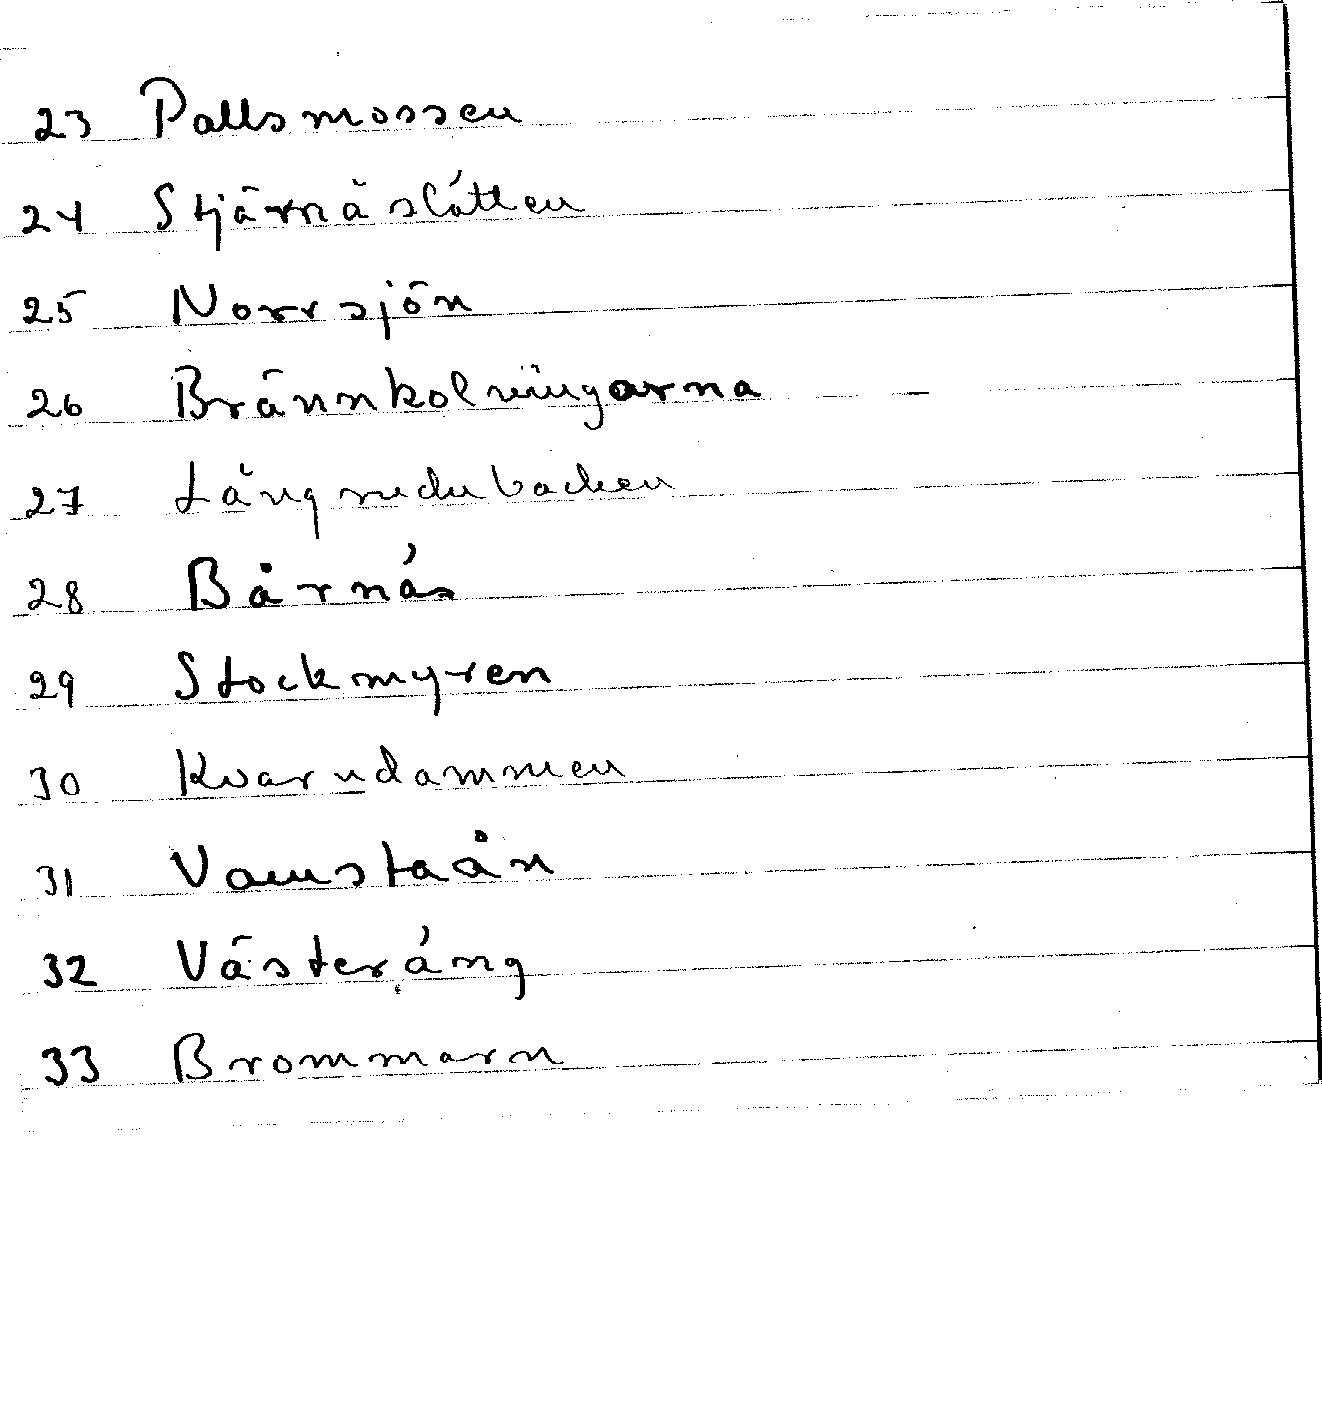 23 Pallsmossen
24 Stjärnåslätten
25 Norrsjön
26 Brännkolningarna
27
28 Bårnäs
29 Stockmyren
30 Kvarndammen
31 Vamstaån
32 Västeräng
33 Brommarn